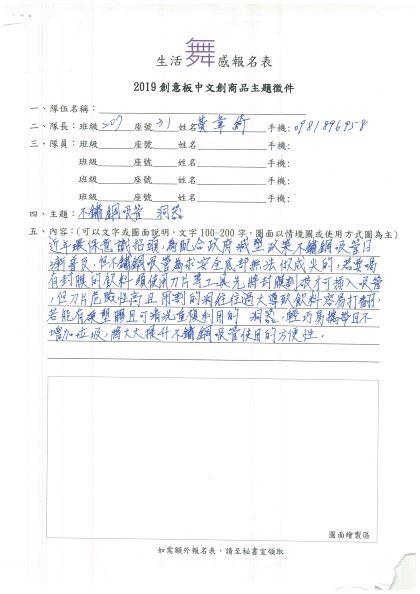 生活舞感報名表
2019創意板中文創商品主題徵件
一、隊伍名稱：
二、隊長：班級 207 座號 31 姓名 黃韋綺 手機：0981896958
三、隊員：班級 座號 姓名 手機：
班級 座號 姓名 手機：
班級 座號 姓名 手機：
班級 座號 姓名 手機：
四、主題：不鏽鋼吸管 洞器
五、內容：(可以文字或圖面說明，文字100-200字，圖面以情境圖或使用方式圖為主)
近年環保意識抬頭，為配合政府減塑政策不鏽鋼吸管日
漸普及，但不鏽鋼吸管為求安全底部無法做成尖的，若要喝
有封膜的飲料須使用刀片等工具先將封膜割破才可插入吸管
，但刀片危險性高且用割的洞往往過大導致飲料容易打翻，
若能有無塑膠且可清洗重複利用的 洞器，輕巧易攜帶且不
增加垃圾，將大大提升不鏽鋼吸管使用的方便性。
圖面繪製區
如需額外報名表，請至秘書室領取